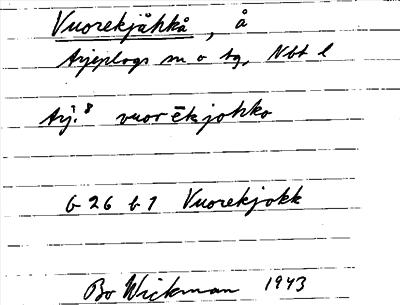 Vuorekjåhkå, å
Arjeplogs sn o tg, Nbt l
Arj.8 vuorēkjohko
G 26 b 1 Vuorekjokk
Bo Wickman 1943